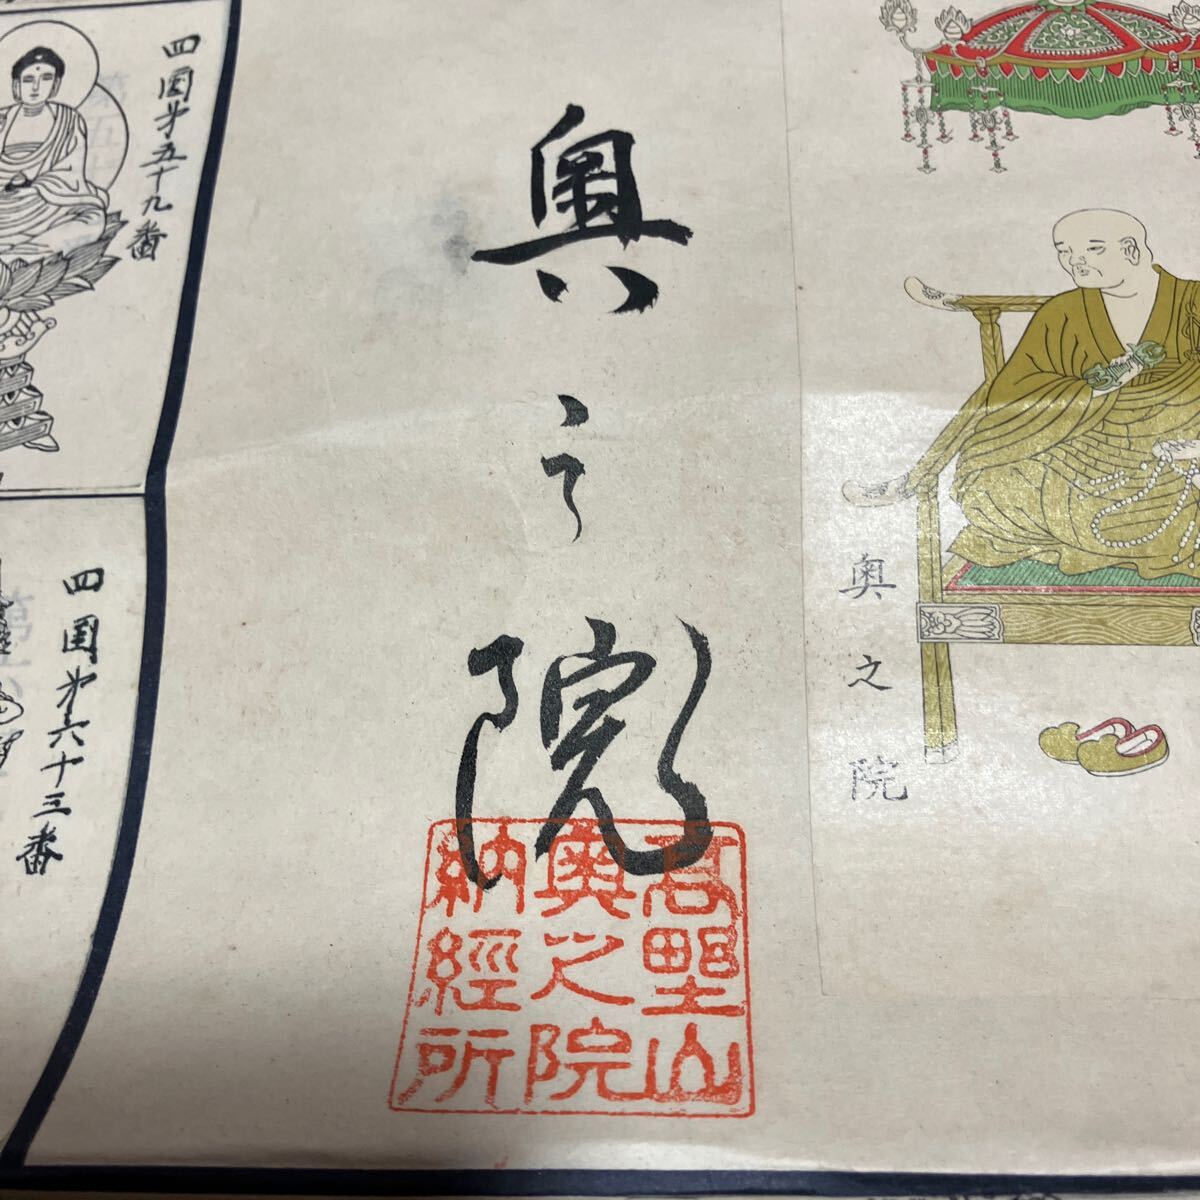 奥之院
奥之院
高野山
奥之院
納經所
四国第五十九番
四国第六十三番